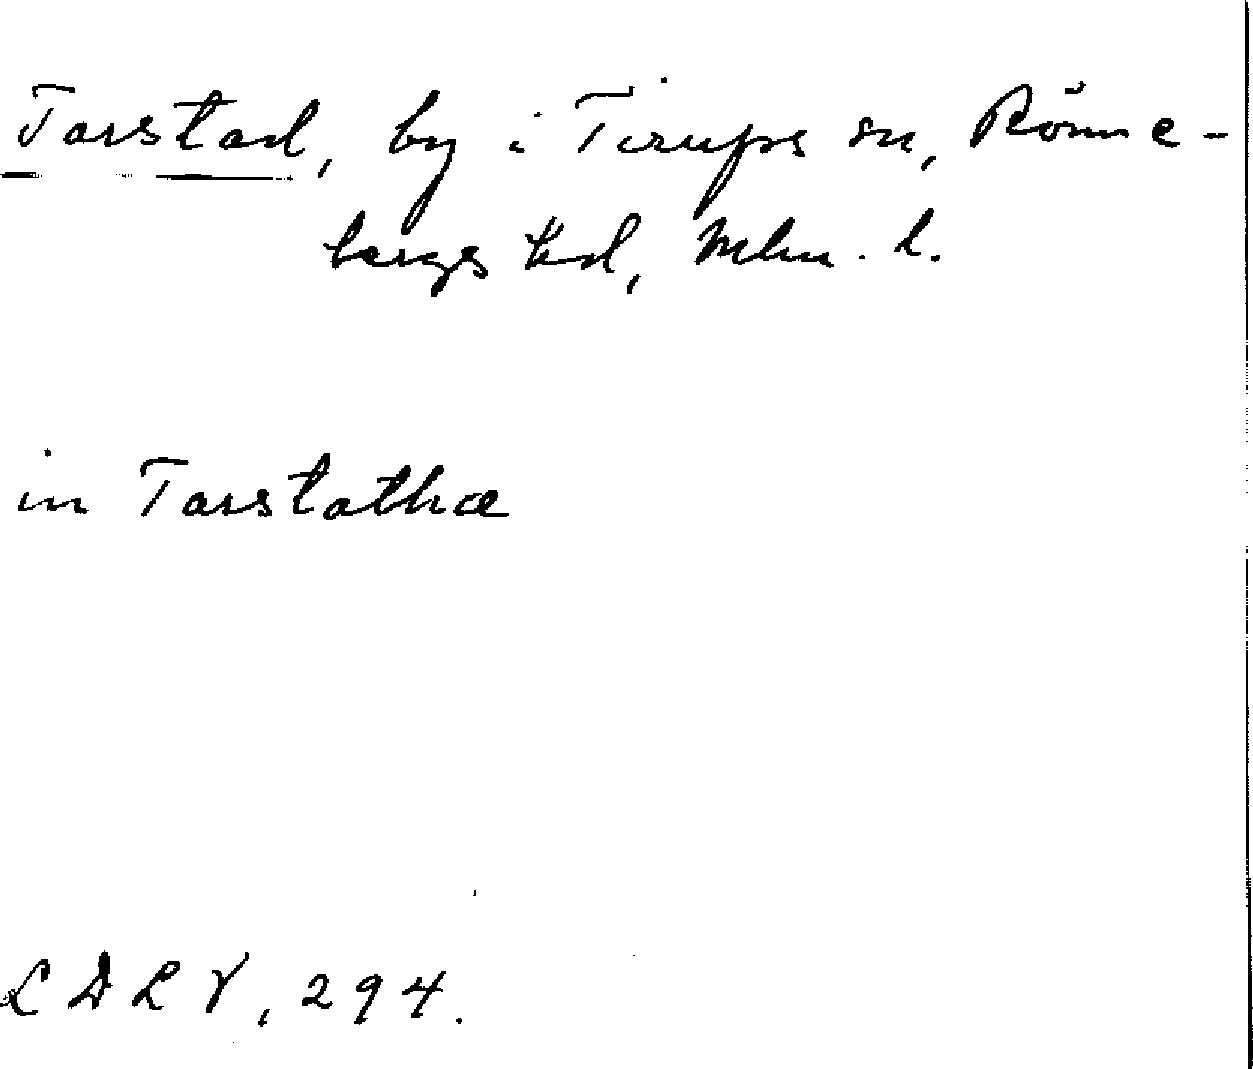 Tarstad, by i Tirups sn, Rönne-
bergs hd, Mlm. l.
in Tarstathæ
LDLV, 294.